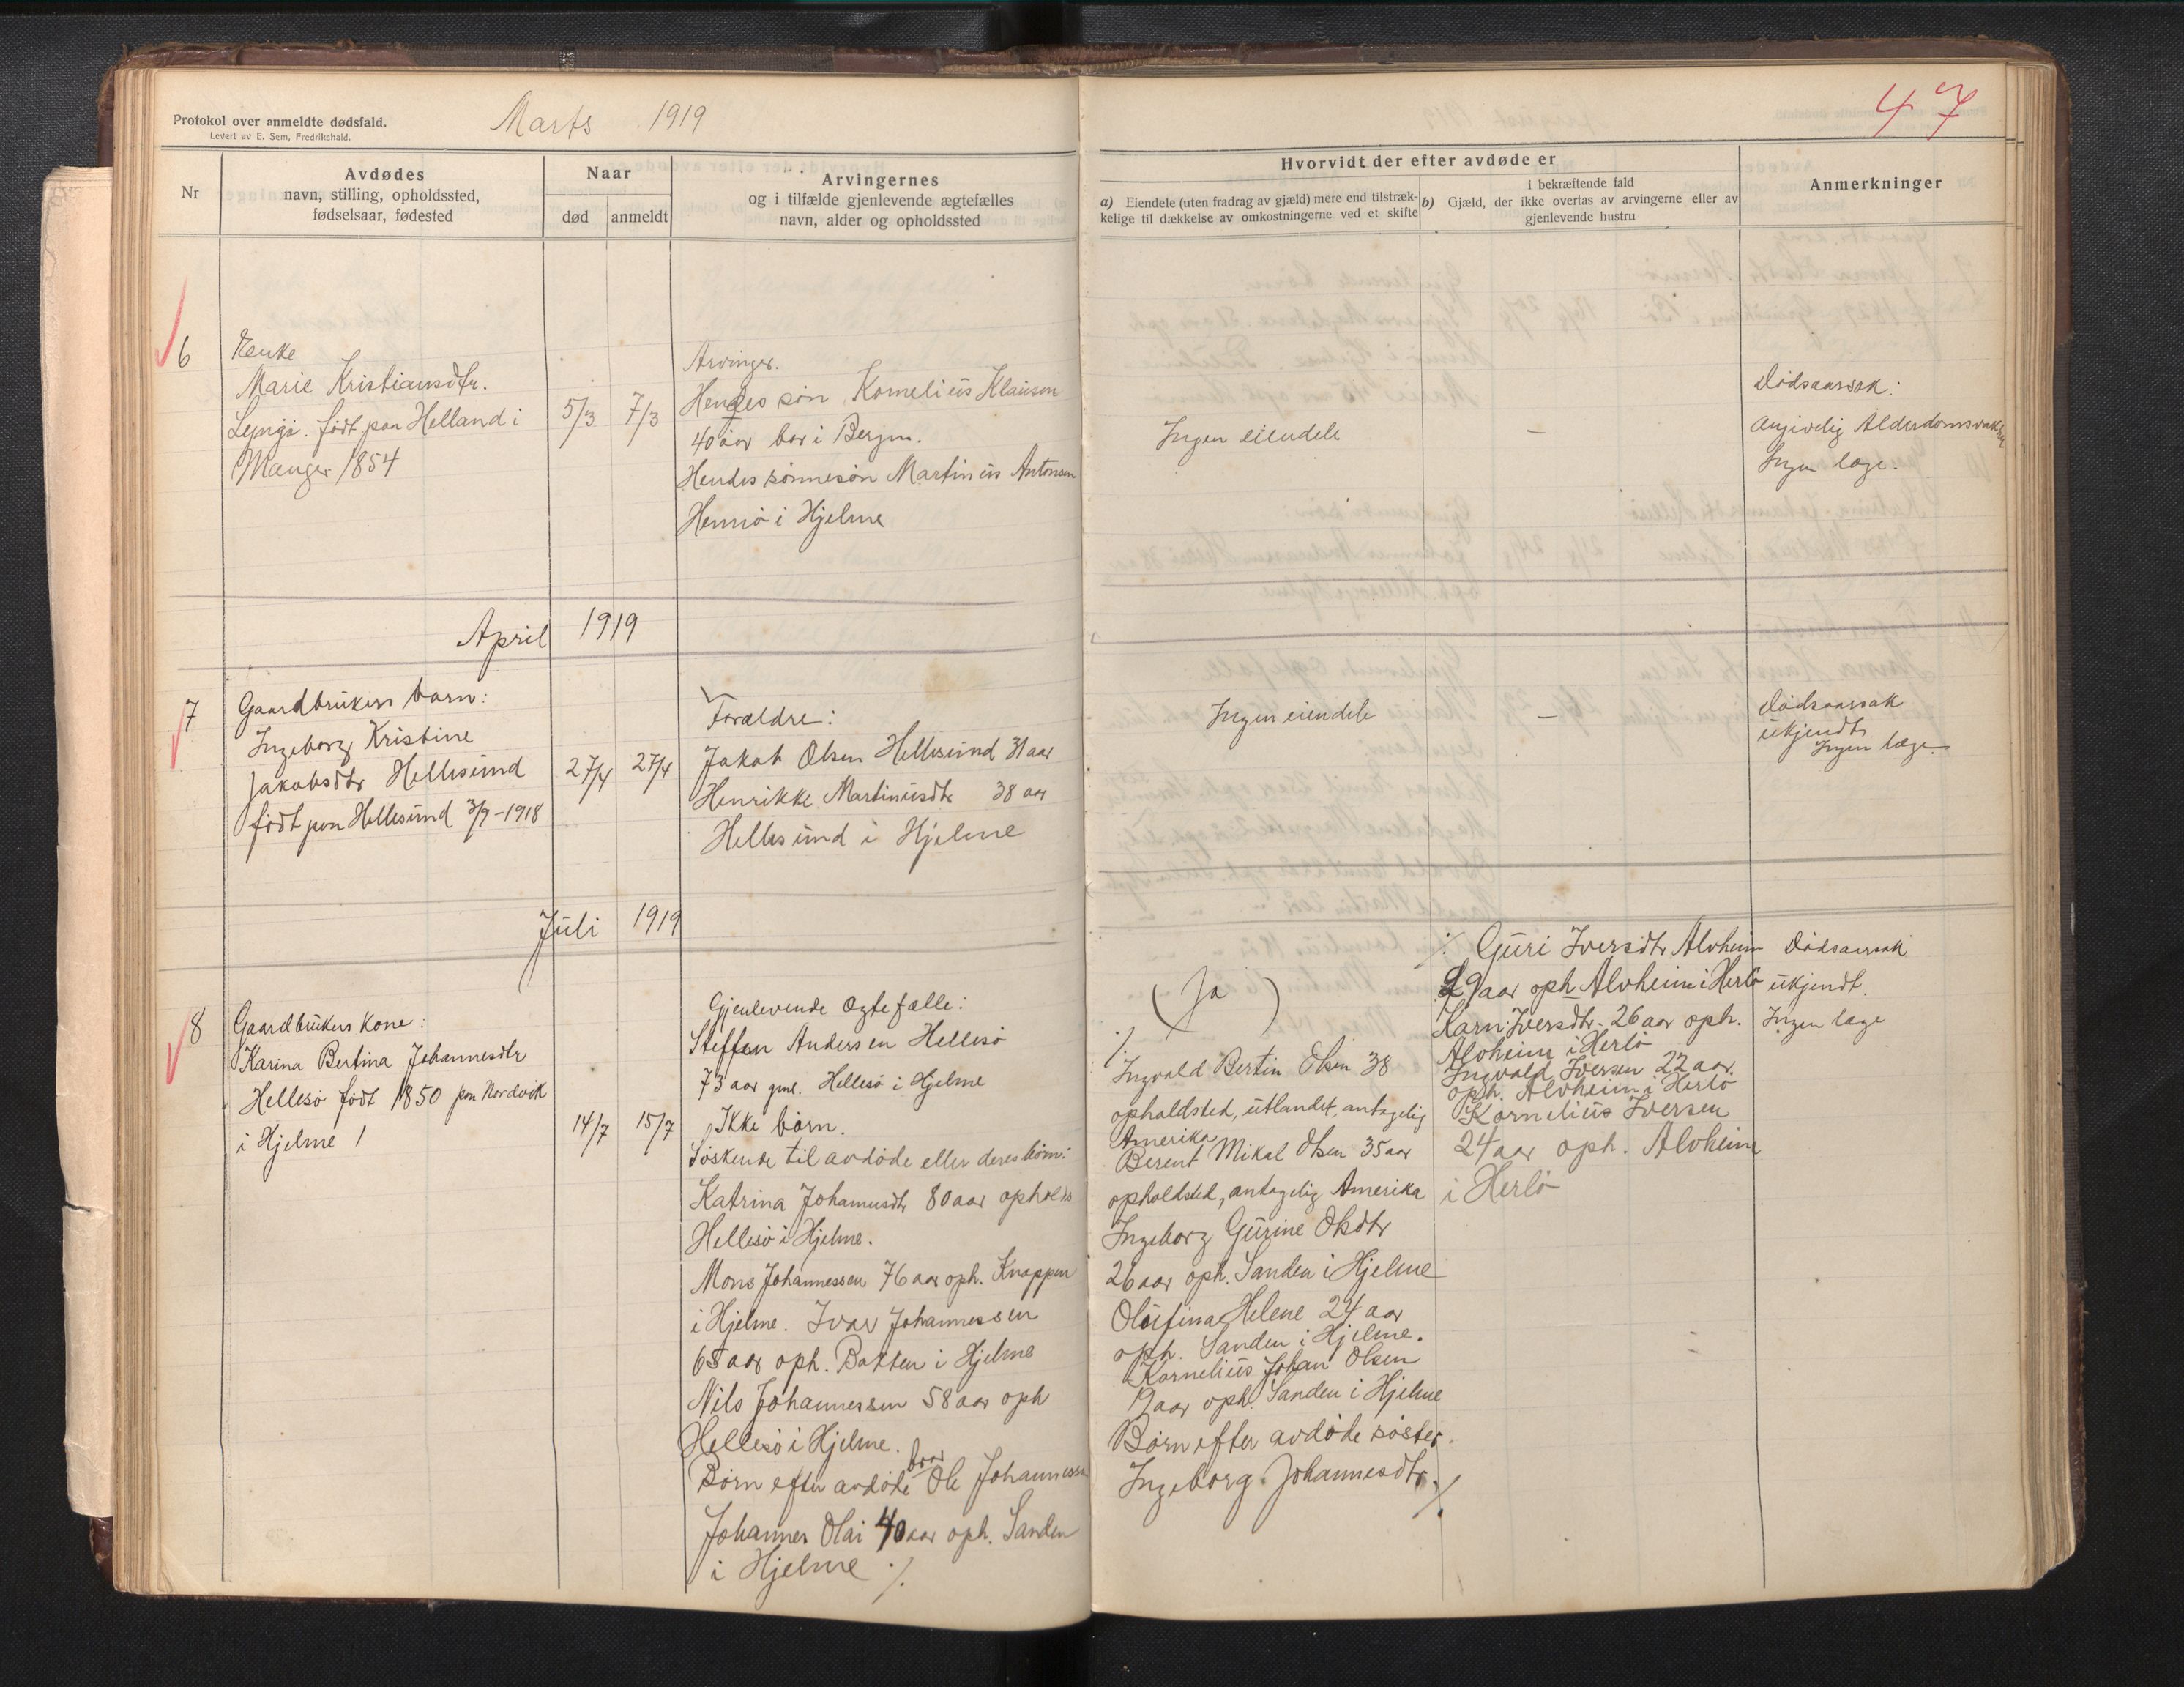 Protokol over anmeldte dødsfald.
Levert av E. Sem, Fredrikshald.
Marts 1919
47
Nr
Avdødes
navn, stilling, opholdssted,
fødselsaar, fødested
Naar
død
anmeldt
Arvingernes
og i tilfælde gjenlevende ægtefælles
navn, alder og opholdssted
Hvorvidt der efter avdøde er
a) Eiendele (uten fradrag av gjæld) mere end tilstræk-
kelige til dækkelse av omkostningerne ved et skifte
b) Gjæld,
i bekræftende fald
der ikke overtas av arvingerne eller av
gjenlevende hustru
Anmerkninger
6
Enke
Marie Kristiansdtr.
Lyngö. født paa Helland i
Manger 1854
5/3
7/3
Arvinger.
Hendes søn Kornelius Klausen
40 aar bor i Bergen.
Hendes sønnesøn Martinius Antonsen
Hernö i Hjelme
Ingen eiendele
—
Dødsaarsak:
angivelig Alderdomssvak
Ingen læge.
April 1919
7
Gaardbrukers barn:
Ingeborg Kristine
Jakobsdtr Hellesund
født paa Hellesund 3/9-1918
27/4
27/4
Forældre:
Jakob Olsen Hellesund 31 aar
Henrikke Martinusdtr 38 aar
Hellesund i Hjelme
Ingen eiendele
—
Dødsaarsak
ukjendt
Ingen læge.
Juli 1919
8
Gaardbrukers kone:
Karina Bertina Johannesdtr
Hellesö født 1850 paa Nordvik
i Hjelme
14/7
15/7
Gjenlevende Ægtefælle:
Steffen Andersen Hellesö
73 aar gml. Hellesö i Hjelme
Ikke børn.
Søskende til avdøde eller deres børn:
Katrina Johannesdtr 80 aar opholds
Hellesö i Hjelme.
Mons Johannessen 76 aar oph. Knappen
i Hjelme. Ivar Johannessen
65 aar oph. Bakken i Hjelme
Nils Johannessen 58 aar oph
Hellesö i Hjelme.
Børn efter avdøde bror Ole Johannessen
Johannes Olai 40 aar oph. Sanden
i Hjelme ./.
( Ja )
./.
Ingvald Bertin Olsen 38
opholdsted, utlandet, antagelig
Amerika
Berent Mikal Olsen 35 aar
opholdsted, antagelig Amerika
Ingeborg Gurine Olsdtr
26 aar oph. Sanden i Hjelme
Olufina Helene 24 aar
oph. Sanden i Hjelme.
Kornelius Johan Olsen
19 aar oph. Sanden i Hjelme
Børn efter avdøde søster.
Ingeborg Johannesdtr. ./.
./. Guri Iversdtr Alvheim
29 aar oph Alvheim i Herlö
Karn: Iversdtr. 26 aar oph.
Alvheim i Herlö
Ingvald Iversen 22 aar.
oph. Alvheim i Herlö
Kornelius Iversen
24 aar oph. Alvheim
i Herlö
Dødsaarsak
ukjendt.
Ingen læge